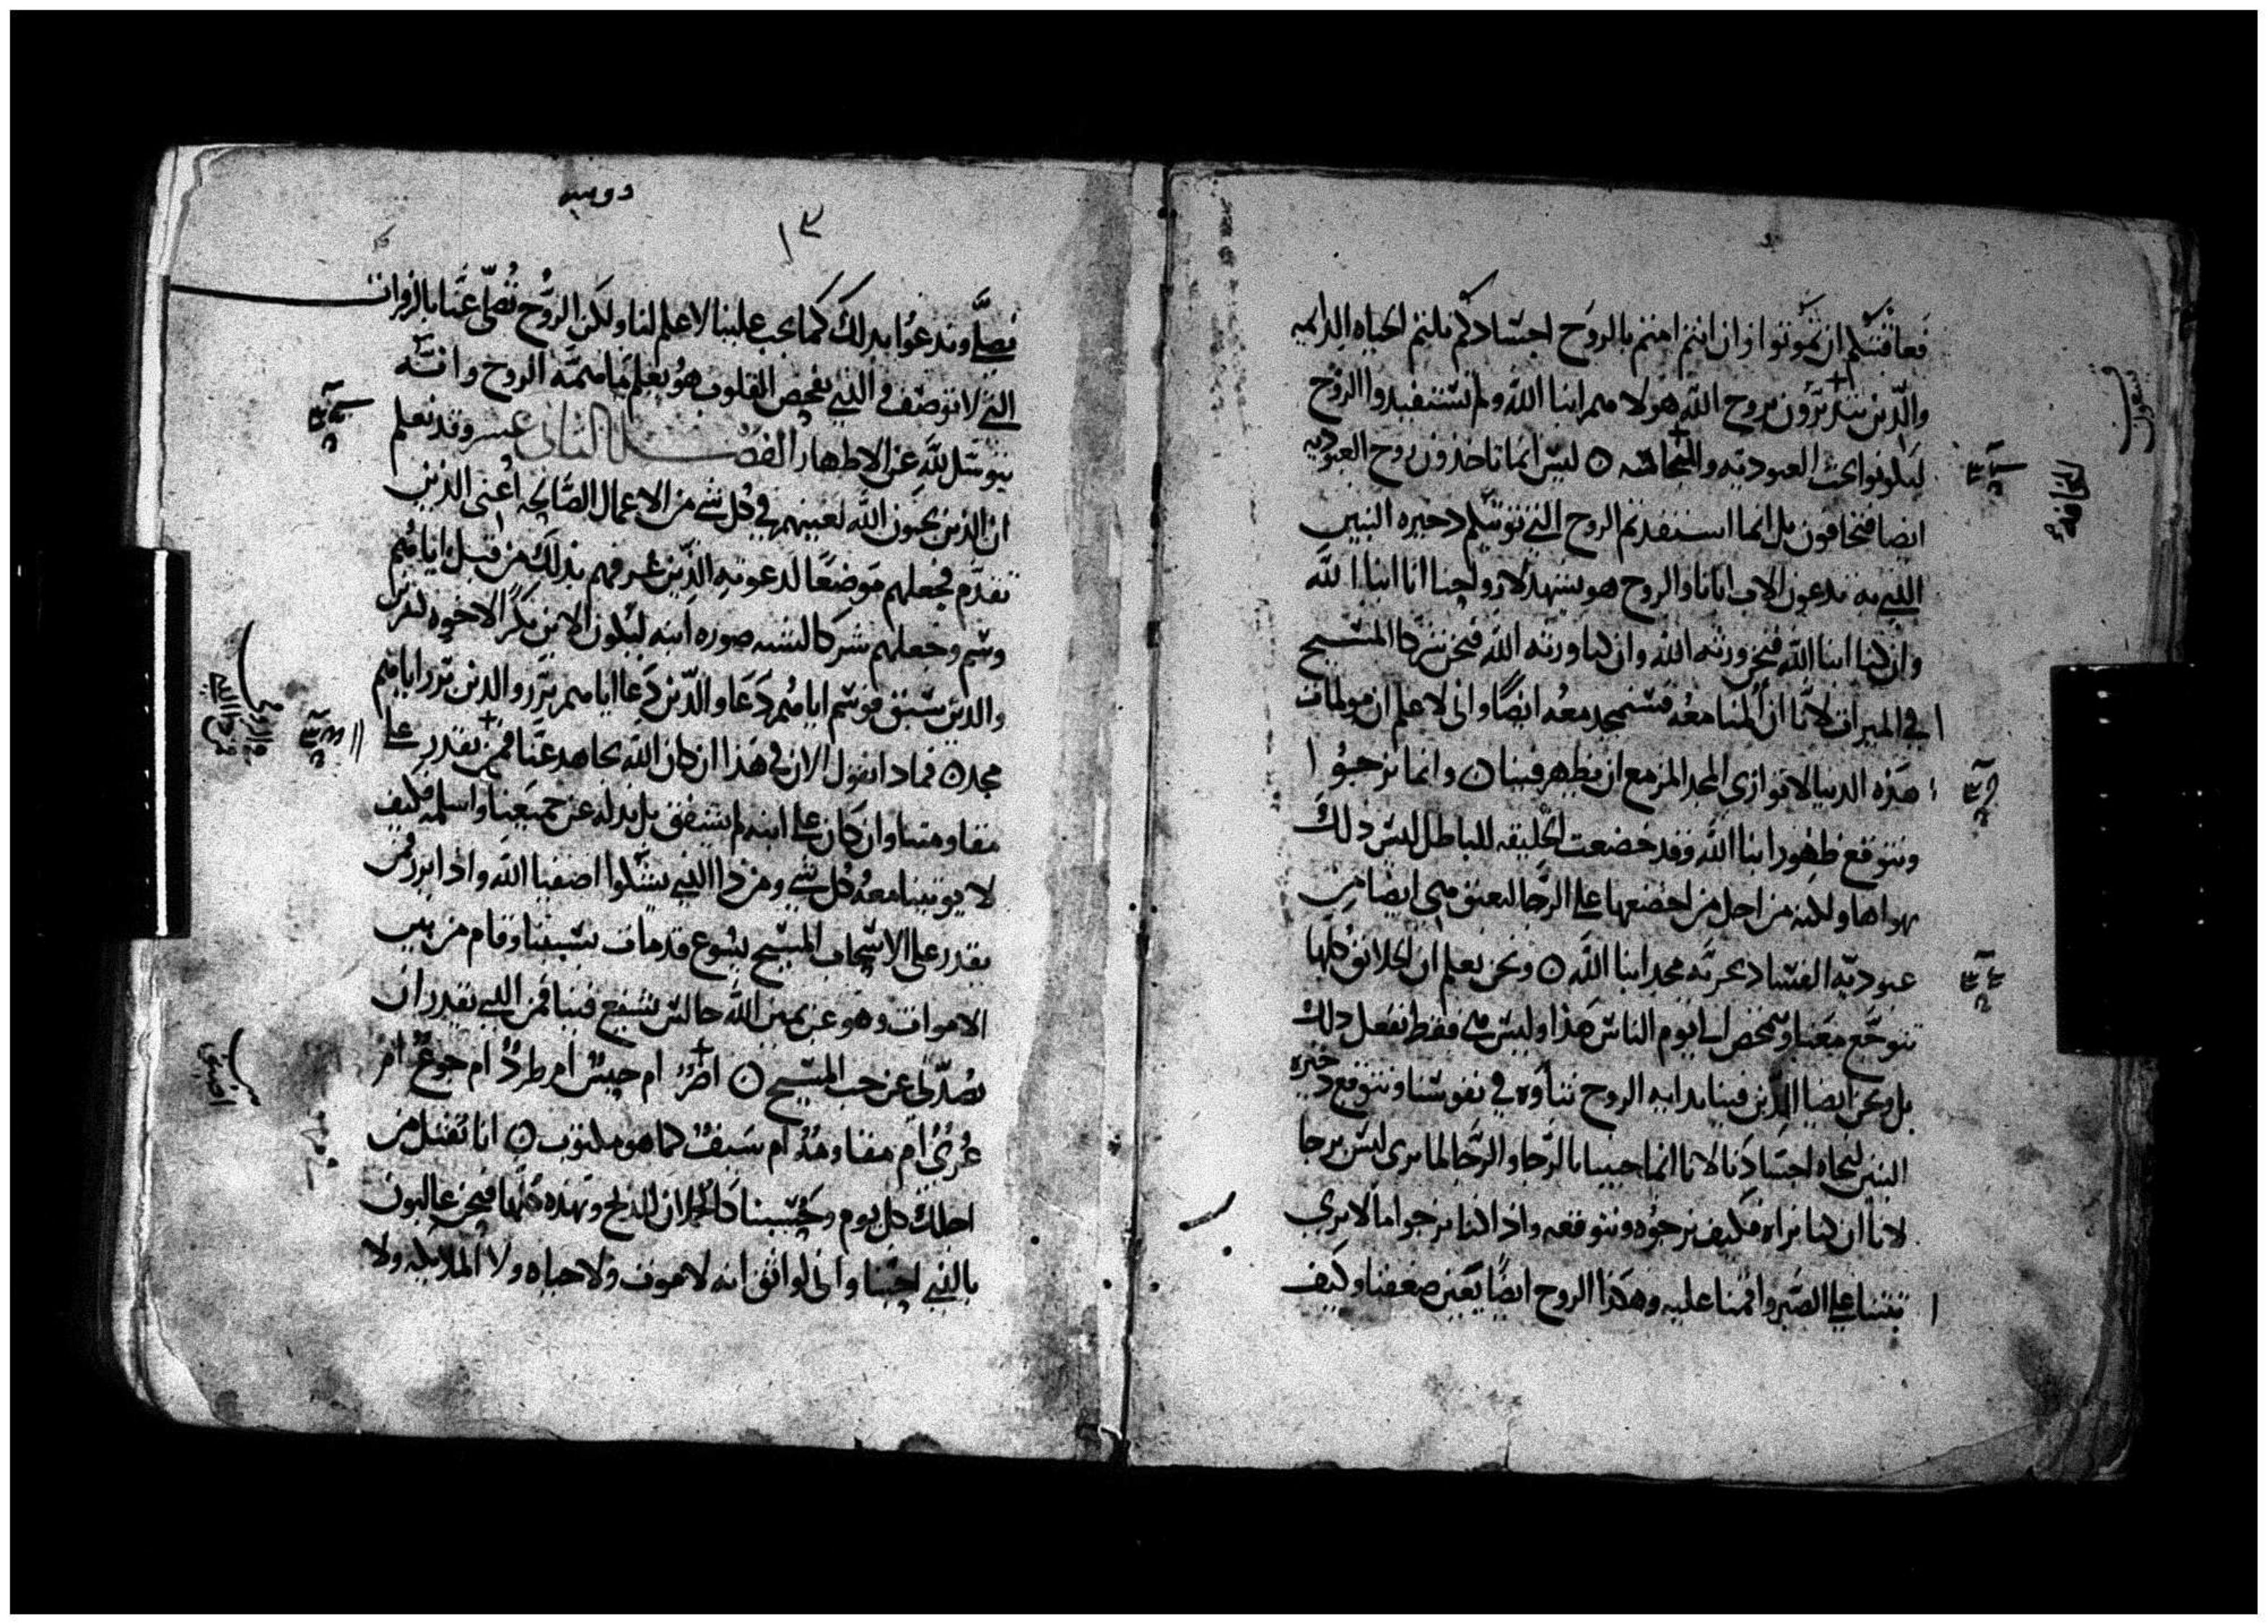 فعاقبتكم ان تموتوا وان انتم امتم بالروح اجسادكم نلتم الحياه الدايمه
والذين يتدبرون بروح الله هولا هم ابنا الله ولم تستفيدوا الروح
ليكونوا تحت العبوديه والمخافه ليس انما تاخذون روح العبوديه
ايضا فتخافون بل انما استفدتم الروح التي توتيكم دخيره البنين
الذي به تدعون الاب ابانا والروح هو يشهد لارواحنا انا ابنا الله
وان كنا ابنا الله فنحن ورثه الله وان كنا ورثه الله فنحن شركا المسيح
في الميراث لانا ان المنا معه فسنمجد معه ايضا واني لاعلم ان مولمات
هذه الدنيا لا توازي المجد المزمع ان يظهر فينا وانما نرجوا
ونتوقع ظهور ابنا الله وقد خضعت الخليقه للباطل ليس ذلك
بهواها ولكنه من اجل من اخضعها على الرجا لتعتق هي ايضا من
عبوديه الفساد بحريه مجد ابنا الله ونحن نعلم ان الخلايق كلها
تتوجع معنا وتمخض الي يوم الناس هذا وليس هي فقط تفعل ذلك
بل ونحن ايضا الذين فينا بدايه الروح نتاوه في نفوسنا ونتوقع دخيره
البنين لنجاه اجسادنا لانا انما حيينا بالرجا والرجا لما يرى ليس برجا
لانا ان كنا نراه فكيف نرجوه ونتوقعه واذا كنا نرجوا ما لا يرى
ثبتنا على الصبر واقمنا عليه وهكذا الروح ايضا يعين ضعفنا وكيف
١٣
نصلي وندعوا بذلك كما يجب علينا لا علم لنا ولكن الروح تصلي عنا بالزفرات
التي لا توصف والذي يفحص القلوب هو يعلم ما همه الروح وانه
يتوسل لله عن الاطهار الفصل الثاني عشر وقد نعلم
ان الذين يحبون الله يعينهم في كل شي من الاعمال الصالحه اعني الذين
تقدم فجعلهم موضعا لدعوته الذين عرفهم بذلك من قبل اياهم
وسم وجعلهم شركا لشبه صوره ابنه ليكون الابن بكر الاخوه كثيرين
والذين سبق فوسم اياهم دعا والذين دعا اياهم برر والذين برر اياهم
مجد فماذا نقول الان في هذا ان كان الله يجاهد عنا فمن يقدر على
مقاومتنا وان كان على ابنه لم يشفق بل بذله عن جميعنا واسلمه فكيف
لا يوتينا معه كل شي ومن ذا الذي يشكوا اصفيا الله واذا برر فمن
يقدر على الاشجاب المسيح يسوع قد مات بسببنا وقام من بين
الاموات وهو عن يمين الله جالس يشفع فينا فمن الذي يقدر ان
يصدني عن حب المسيح اضر ام حبس ام طرد ام جوع ام
عري ام مقاومه ام سيف كما هو مكتوب انا نقتل من
اجلك كل يوم وحسبنا كالحملان للذبح وبهذه كلها فنحن غالبون
بالذي احبنا واني لواثق انه لا موت ولا حياه ولا الملايكه ولا